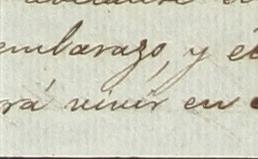 embarazo, y é
rá vivir en